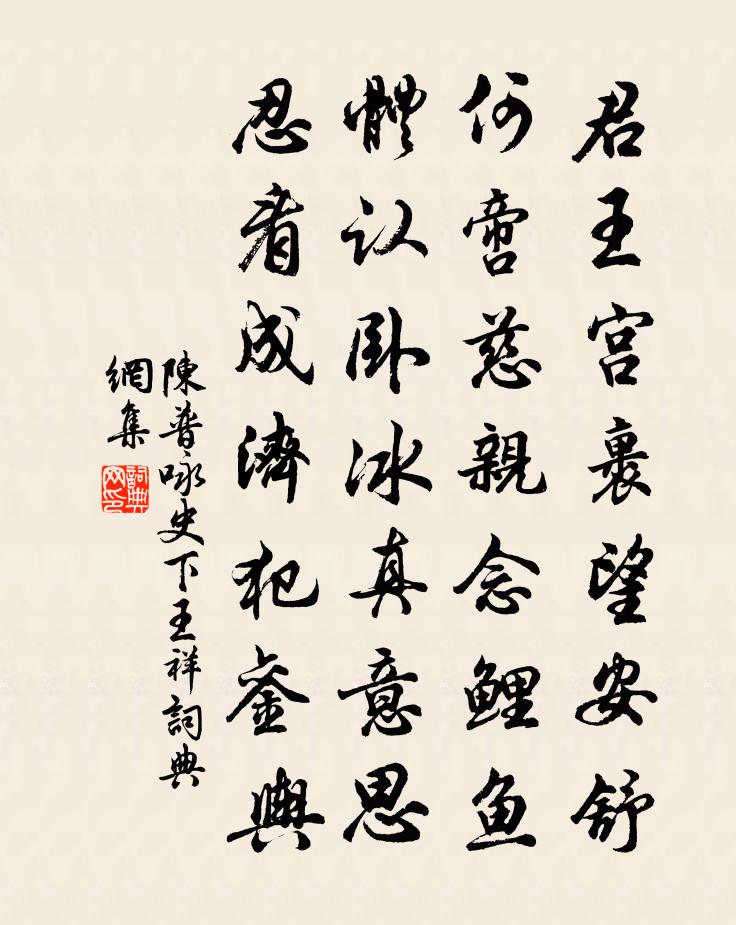 君王宫裏望安舒
何啻慈親念鯉鱼
體认卧冰真意思
忍看成濟犯銮輿
陳普咏史下王祥詞典
網集
詞典
网印